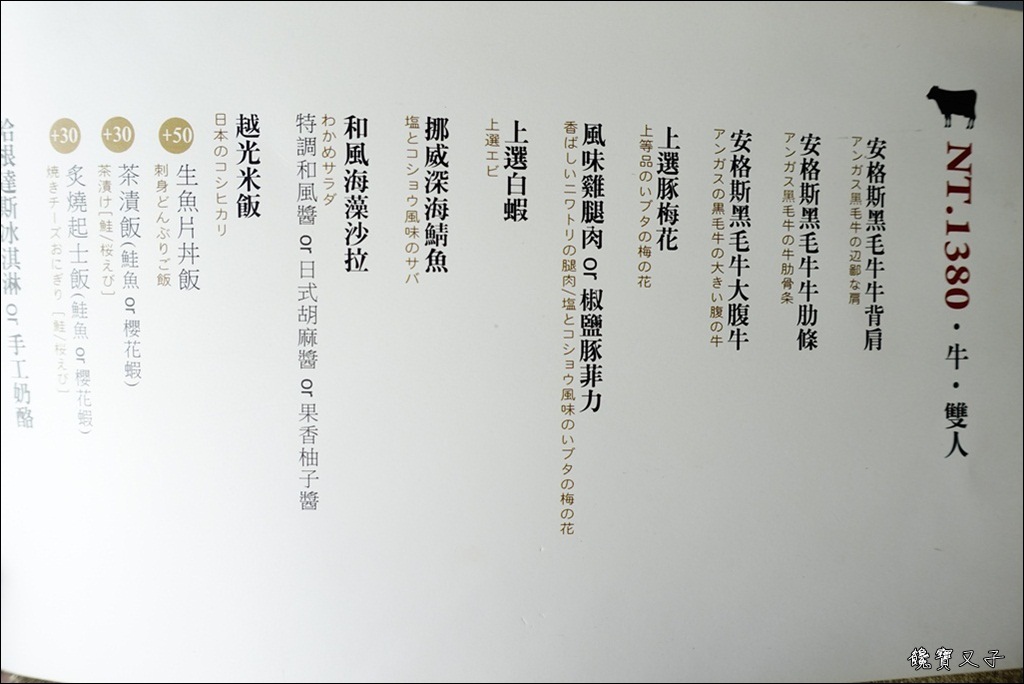 NT.1380・牛・雙人
安格斯黑毛牛牛背肩
アンガス黒毛牛の辺鄙な肩
安格斯黑毛牛牛肋條
アンガス黒毛牛の牛肋骨条
安格斯黑毛牛大腹牛
アンガスの黒毛牛の大きい腹の牛
上選豚梅花
上等品のいブタの梅の花
風味雞腿肉 or 椒鹽豚菲力
香ばしいニワトリの腿肉/塩とコショウ風味のいブタの梅の花
上選白蝦
上選エビ
挪威深海鯖魚
塩とコショウ風味のサバ
和風海藻沙拉
わかめサラダ
特調和風醬 or 日式胡麻醬 or 果香柚子醬
越光米飯
日本のコシヒカリ
+50 生魚片丼飯
刺身どんぶりご飯
+30 茶漬飯(鮭魚 or 櫻花蝦)
茶漬け[鮭/桜えび]
+30 炙燒起士飯(鮭魚 or 櫻花蝦)
焼きチーズおにぎり[鮭/桜えび]
哈根達斯冰淇淋 or 手工奶酪
饞寶又子